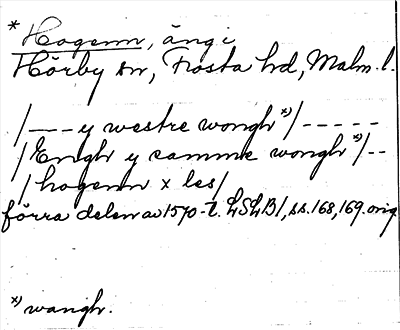 * Hogenn, äng i
Hörby sn, Frosta hd, Malm. l.
/--- y westre wongh *)/-----
/Engh y samme wongh *)/--
/hogenn x les/
förra delen av 1570-t. LSLB1, ss. 168, 169. orig.
*) wangh.